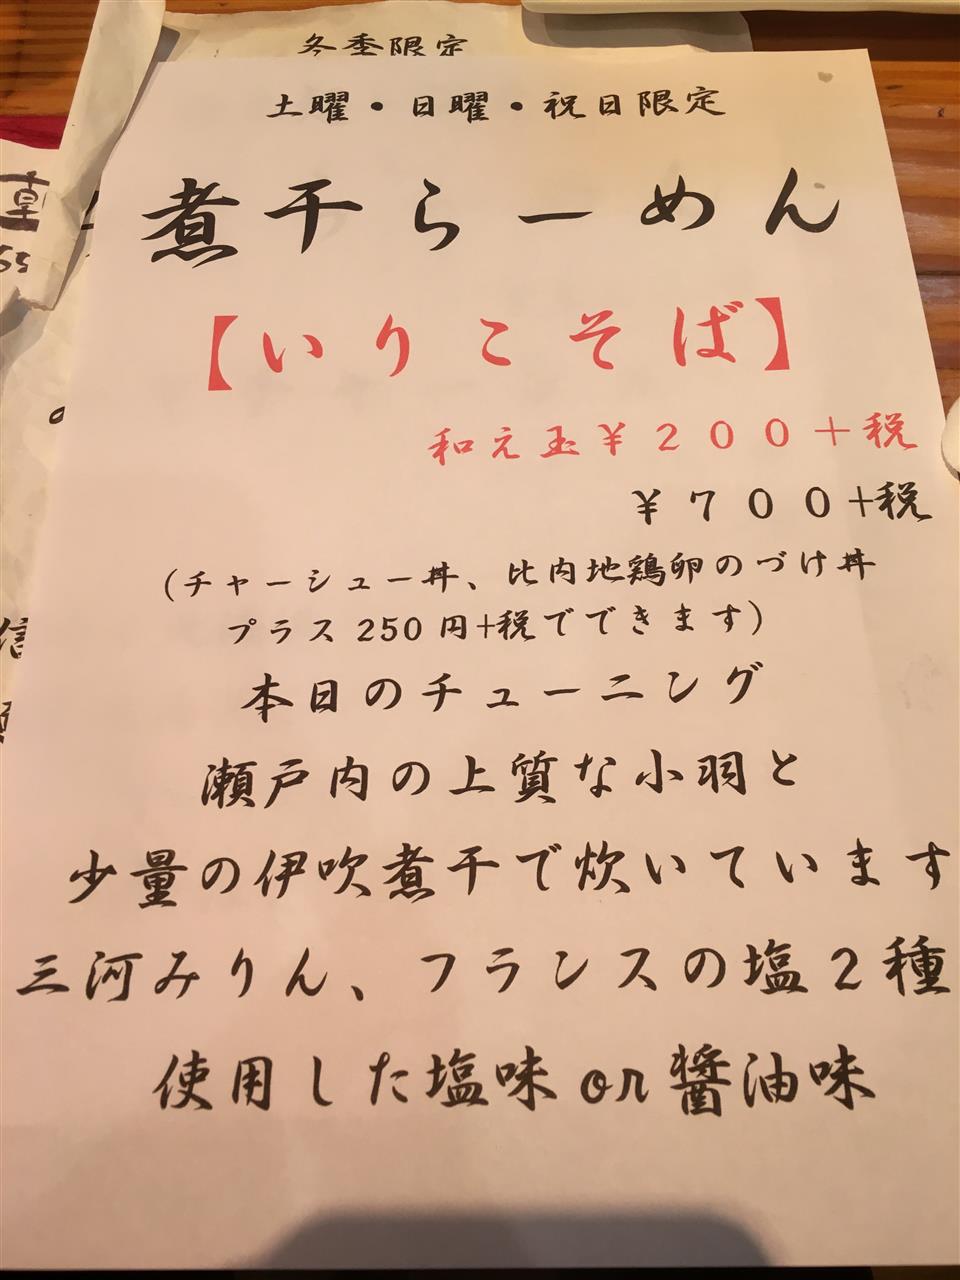 冬季限定
土曜・日曜・祝日限定
煮干らーめん
【いりこそば】
和え玉￥２００＋税
￥７００+税
（チャーシュー丼、比内地鶏卵のづけ丼
プラス250円+税でできます）
本日のチューニング
瀬戸内の上質な小羽と
少量の伊吹煮干で炊いています
三河みりん、フランスの塩２種
使用した塩味or醤油味